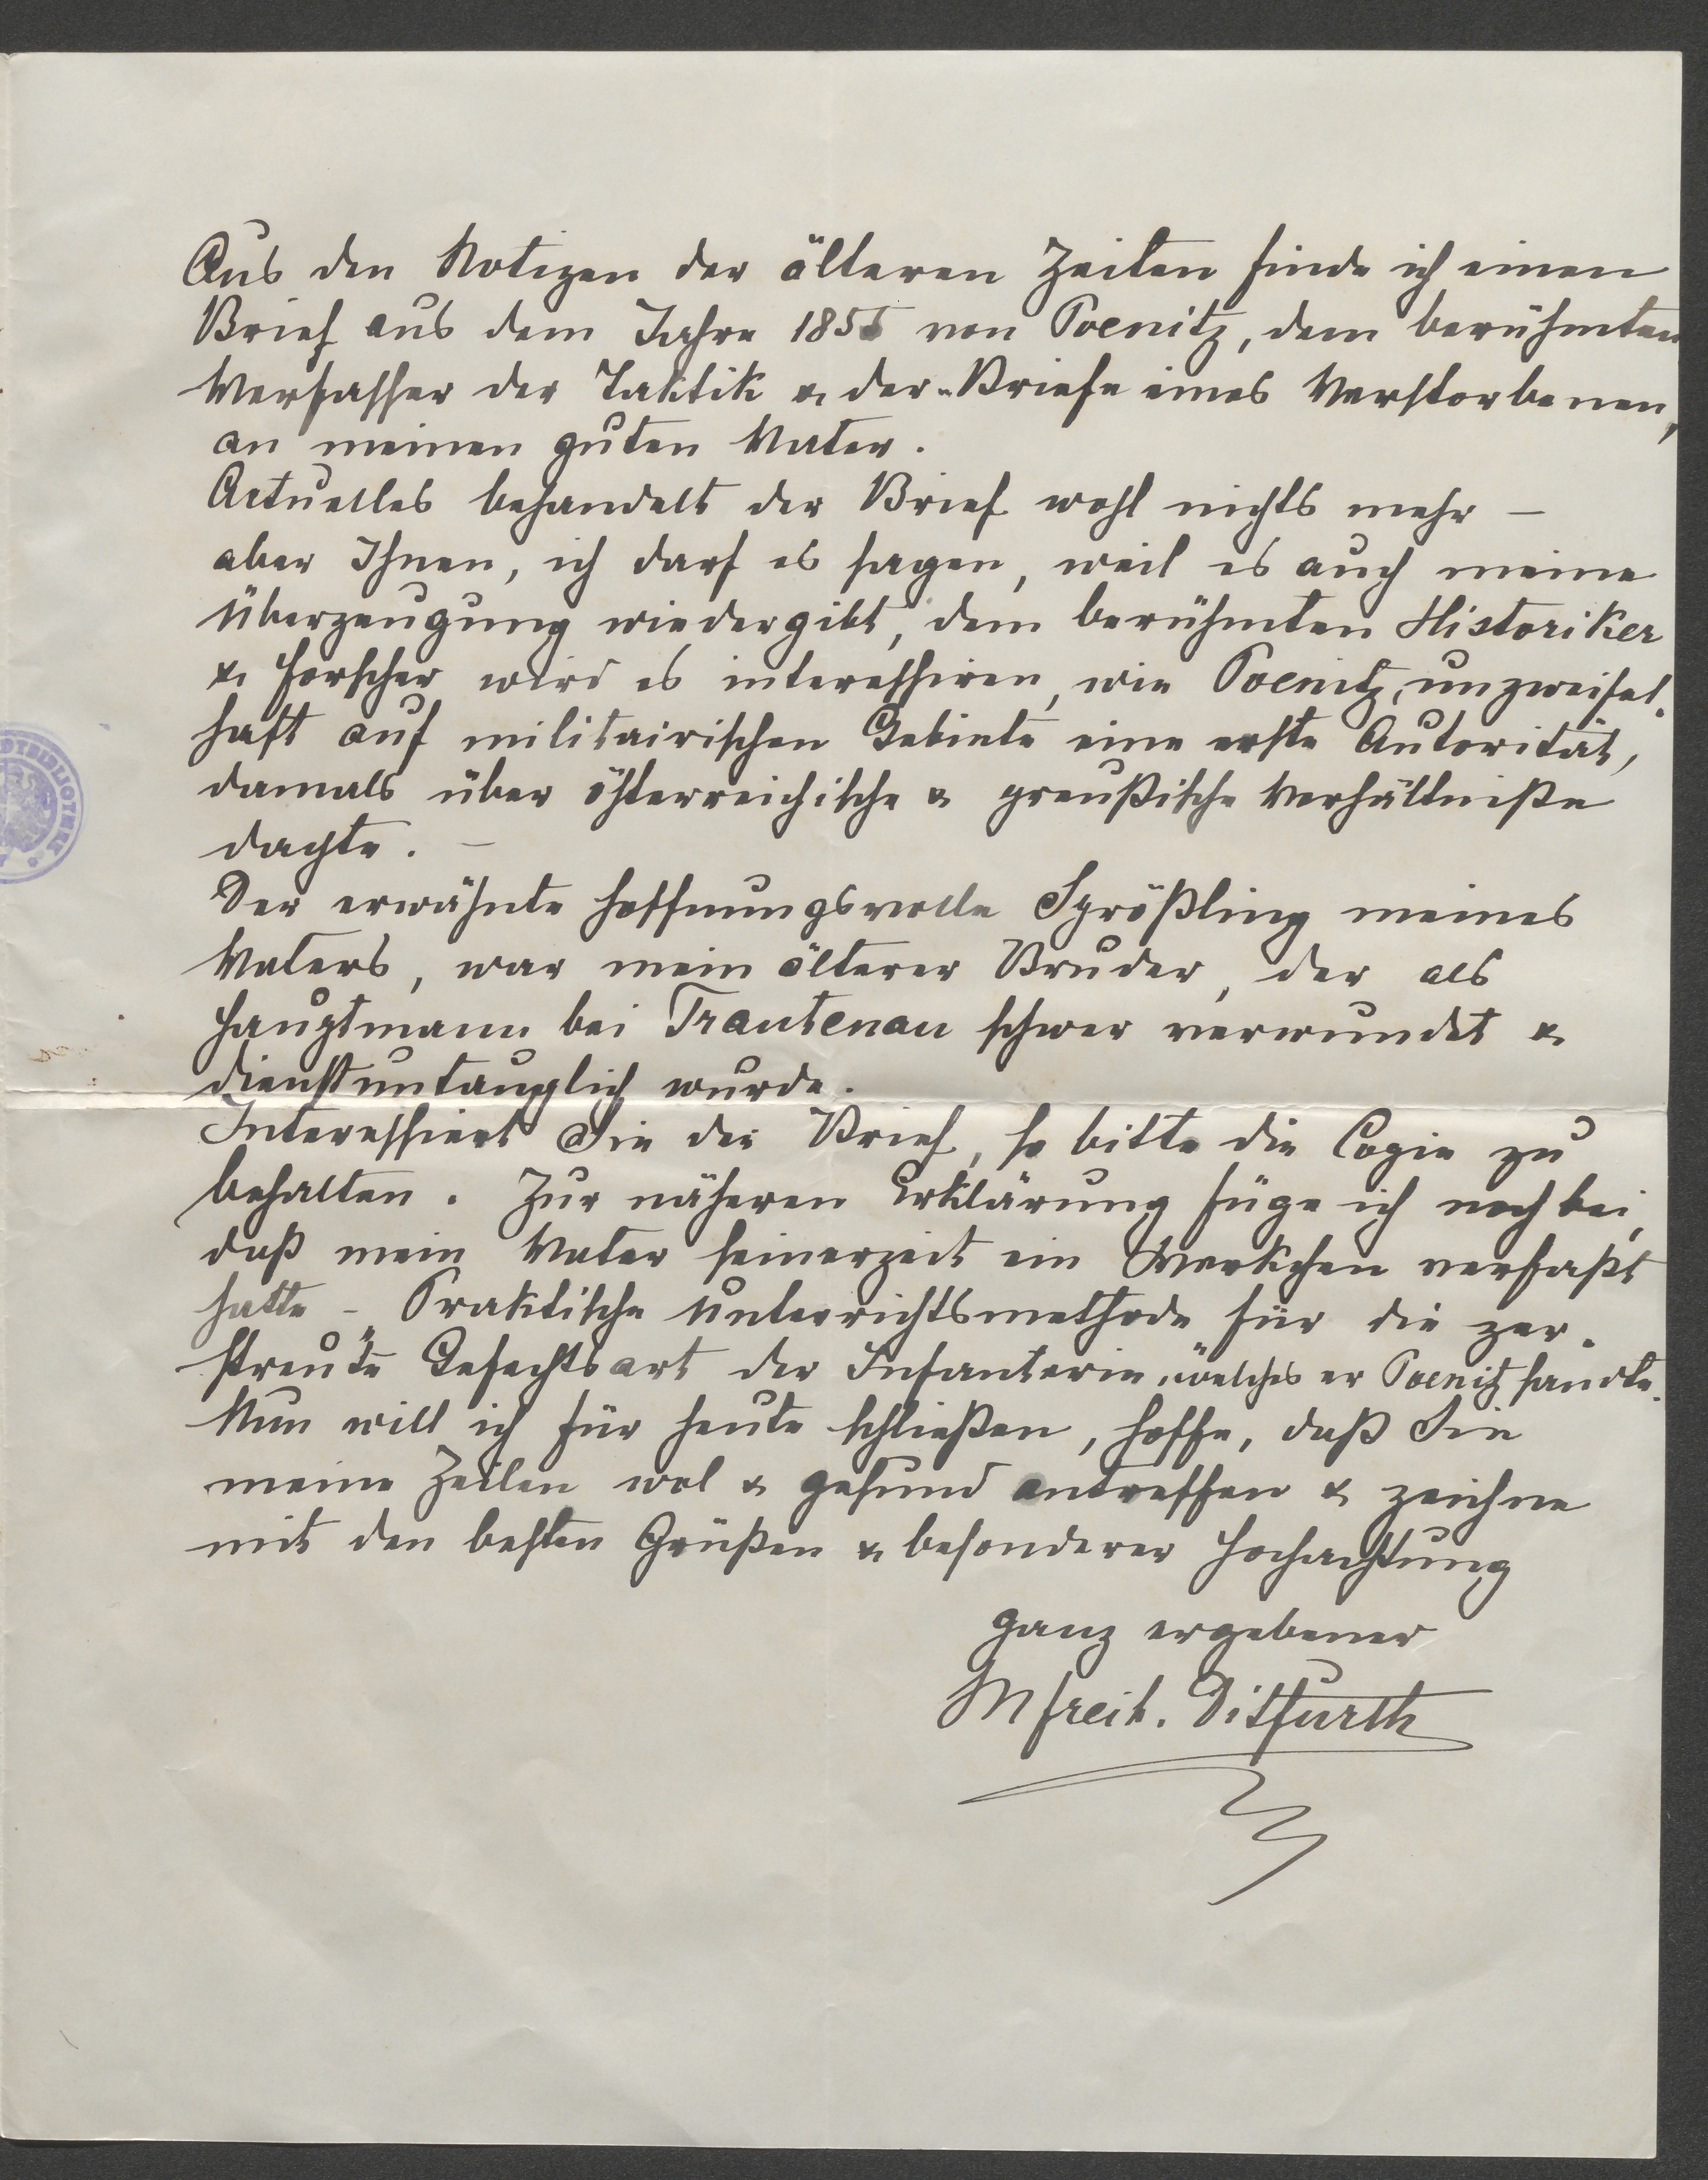 Aus den Notizen der älteren Zeiten finde ich einen
Brief aus dem Jahre 1855 von Poenitz, dem berühmten
Verfasser der Taktik & der „Briefe eines Verstorbenen,
an meinen guten Vater.
Actuelles behandelt der Brief wohl nichts mehr –
aber Ihnen, ich darf es sagen, weil es auch meine
Überzeugung wiedergibt, dem berühmten Historiker
& Forscher wird es interessiren, wie Poenitz, unzweifel-
haft auf militairischen Gebiete eine erste Autorität,
damals über österreichische & preußische Verhältniße
dachte. –
Der erwähnte hoffnungsvolle Sprößling meines
Vaters, war mein älterer Bruder, der als
Hauptmann bei Trautenau schwer verwundet &
dienstuntauglich wurde.
Interessiert Sie der Brief, so bitte die Copie zu
behalten. Zur näheren Erklärung füge ich noch bei,
daß mein Vater seinerzeit ein Werkchen verfaßt
hatte – „Praktische Unterrichtsmethode für die zer-
streute Gefechtsart der Infanterie, welches er Poenitz sandte.
Nun will ich für heute schließen, hoffe, daß Sie
meine Zeilen wol & gesund antreffen & zeichne
mit den besten Grüßen & besonderer Hochachtung
ganz ergebener
M Freih. Ditfurth